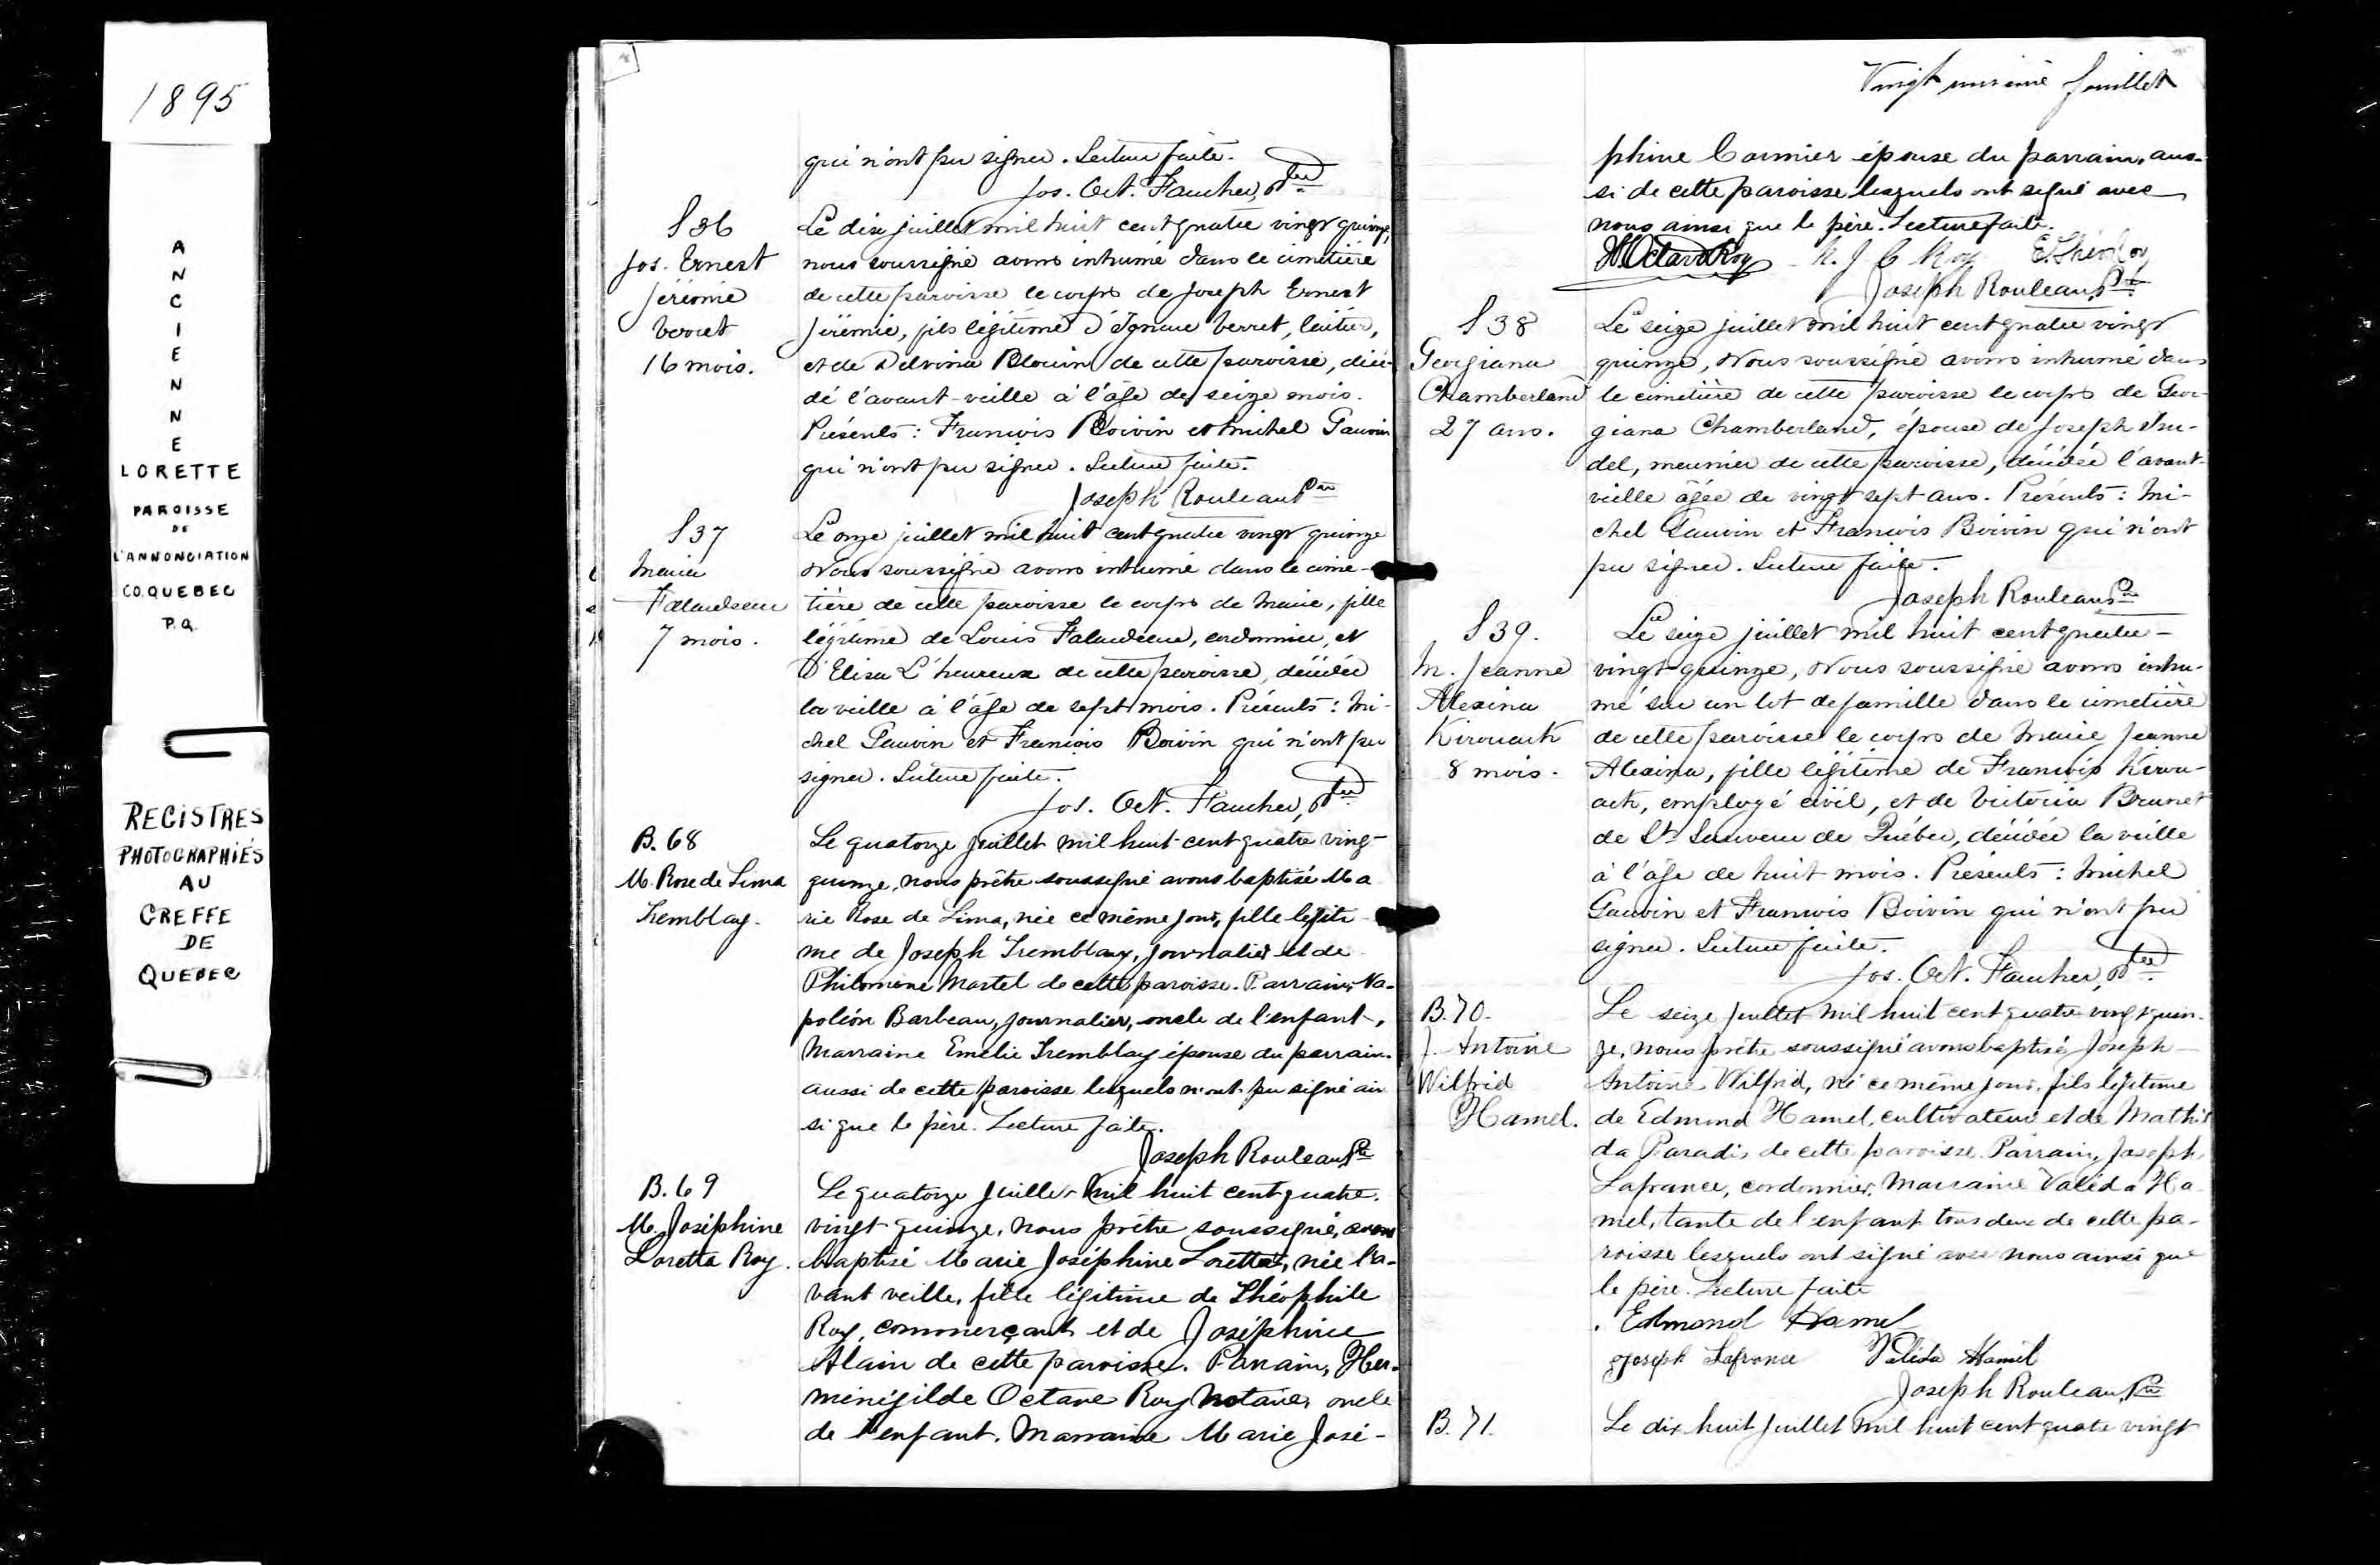 1895
ANCIENNE
LORETTE
PAROISSE
DE
L'ANNONCIATION
CO. QUEBEC
P.Q.
REGISTRES
PHOTOGRAPHIÉS
AU
GREFFE
DE
QUEBEC
qui n'ont pu signer. Lecture faite.
Jos. Oct. Faucher, Ptre
S 36
Jos. Ernest
Jérémie
Verret
16 mois.
Le dix juillet mil huit cent quatre vingt quinze,
nous soussigné avons inhumé dans le cimetière
de cette paroisse le corps de Joseph Ernest
Jérémie, fils légitime d'Ignace Verret, laitier,
et de Delvina Blouin de cette paroisse, décé-
dé l'avant-veille à l'âge de seize mois.
Présents: François Boivin et Michel Gauvin
qui n'ont pu signer. Lecture faite.
Joseph Rouleau Ptre
S 37
Marie
Falardeau
7 mois.
Le onze juillet mil huit cent quatre vingt quinze
Nous soussigné avons inhumé dans le cime-
tière de cette paroisse le corps de Marie, fille
légitime de Louis Falardeau, cordonnier, et
d'Elisa L'heureux de cette paroisse, décédée
la veille à l'âge de sept mois. Présents: Mi-
chel Gauvin et François Boivin qui n'ont pu
signer. Lecture faite.
Jos. Oct. Faucher, Ptre
B. 68
M. Rose de Lima
Tremblay.
Le quatorze juillet mil huit cent quatre ving-
quinze, nous prêtre soussigné avons baptisé Ma
rie Rose de Lima, née ce même jour, fille légiti-
me de Joseph Tremblay, journalier et de
Philomène Martel de cette paroisse. Parrain, Na-
poléon Barbeau, journalier, oncle de l'enfant,
Marraine Emélie Tremblay épouse du parrain
aussi de cette paroisse lesquels n'ont pu signé ain
si que le père. Lecture faite.
Joseph Rouleau, Ptre
B. 69
M. Joséphine
Loretta Roy.
Le quatorze juillet mil huit cent quatre.
vingt quinze, nous prêtre soussigné, avons
baptisé Marie Joséphine Loretta, née l'a-
vant veille, fille légitime de Théophile
Roy, commerçant et de Joséphine
Alain de cette paroisse. Parrain, Her-
ménégilde Octave Roy Notaire, oncle
de l'enfant. Marraine Marie José-
Vingt unième feuillet
phine Cormier épouse du parrain, aus-
si de cette paroisse lesquels ont signé avec
nous ainsi que le père. Lecture faite.
H Octave Roy M. J. C Roy E. Théo Roy
Joseph Rouleau, Ptre
S 38
Georgiana
Chamberland
27 ans.
Le seize juillet mil huit cent quatre vingt
quinze, Nous soussigné avons inhumé dans
le cimetière de cette paroisse le corps de Geor-
giana Chamberland, épouse de Joseph Tru-
del, meunier de cette paroisse, décédée l'avant-
veille âgée de vingt sept ans. Présents: Mi-
chel Gauvin et François Boivin qui n'ont
pu signer. Lecture faite.
Joseph Rouleau Ptre
S 39.
M. Jeanne
Alexina
Kirouack
8 mois.
Le seize juillet mil huit cent quatre-
vingt-quinze, Nous soussigné avons inhu-
mé sur un lot de famille dans le cimetière
de cette paroisse le corps de Marie Jeanne
Alexina, fille légitime de François Kirou-
ack, employé civil, et de Victoria Brunet
de St Sauveur de Québec, décédée la veille
à l'âge de huit mois. Présents: Michel
Gauvin et François Boivin qui n'ont pu
signer. Lecture faite.
Jos. Oct. Faucher, Ptre
B. 70.
J. Antoine
Wilfrid
Hamel.
Le seize juillet mil huit cent quatre vingt quin-
ze, nous prêtre soussigné avons baptisé Joseph
Antoine Wilfrid, né ce même jour, fils légitime
de Edmond Hamel, cultivateur et de Mathil
da Paradis de cette paroisse. Parrain, Joseph
Lafrance, cordonnier, Marraine Valéda Ha
mel, tante de l'enfant tous deux de cette pa-
roisse lesquels ont signé avec nous ainsi que
le père. Lecture faite
Edmond Hamel
Joseph Lafrance Valéda Hamel
Joseph Rouleau, Ptre
B. 71.
Le dix huit juillet mil huit cent quatre vingt